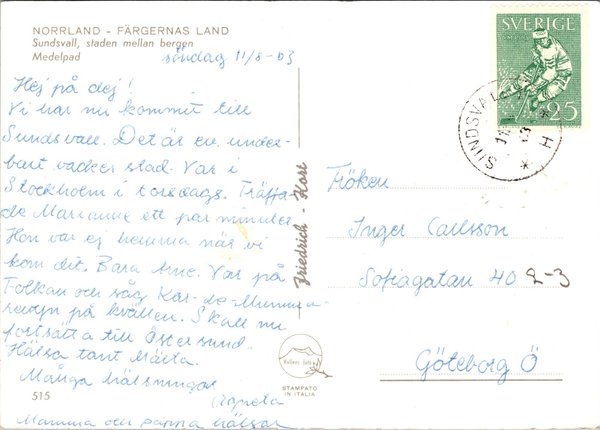 NORRLAND - FÄRGERNAS LAND
Sundsvall, staden mellan bergen
Medelpad
söndag 11/8-63
Hej på dej!
Vi har nu kommit till
Sundsvall. Det är en under-
bart vacker stad. Var i
Stockholm i torsdags. Träffa-
de Marianne ett par minuter.
Hon var ej hemma när vi
kom dit. Bara Arne. Var på
Folkan och såg Kar-de-Mumma-
revyn på kvällen. Skall nu
fortsätta till Östersund.
Hälsa tant Märta.
Många hälsningar
Agneta
Mamma och pappa hälsar
515
Friedrich - Kort
STAMPATO
IN ITALIA
SVERIGE
25
SUNDSVALL
H
Fröken
Inger Carlsson
Sofiagatan 40 2-3
Göteborg Ö